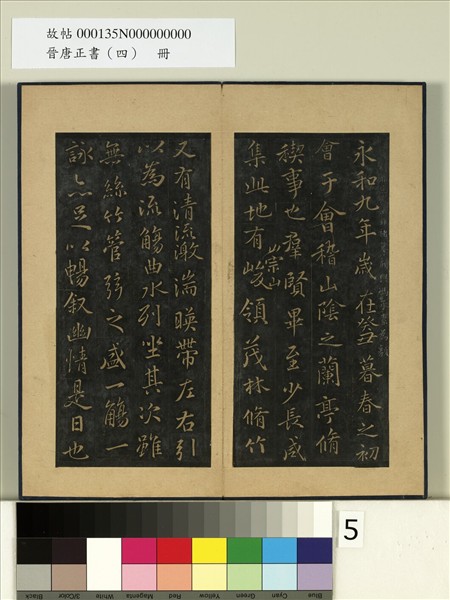 故帖 000135N000000000
晉唐正書（四） 冊
永和九年歲在癸丑暮春之初
會于會稽山陰之蘭亭脩
稧事也羣賢畢至少長咸
集此地有崇山峻領茂林脩竹
又有清流激湍暎帶左右引
以為流觴曲水列坐其次雖
無絲竹管弦之盛一觴一
詠亦足以暢敘幽情是日也
5
Black
3/Color
White
Magenta
Red
Yellow
Green
Cyan
Blue